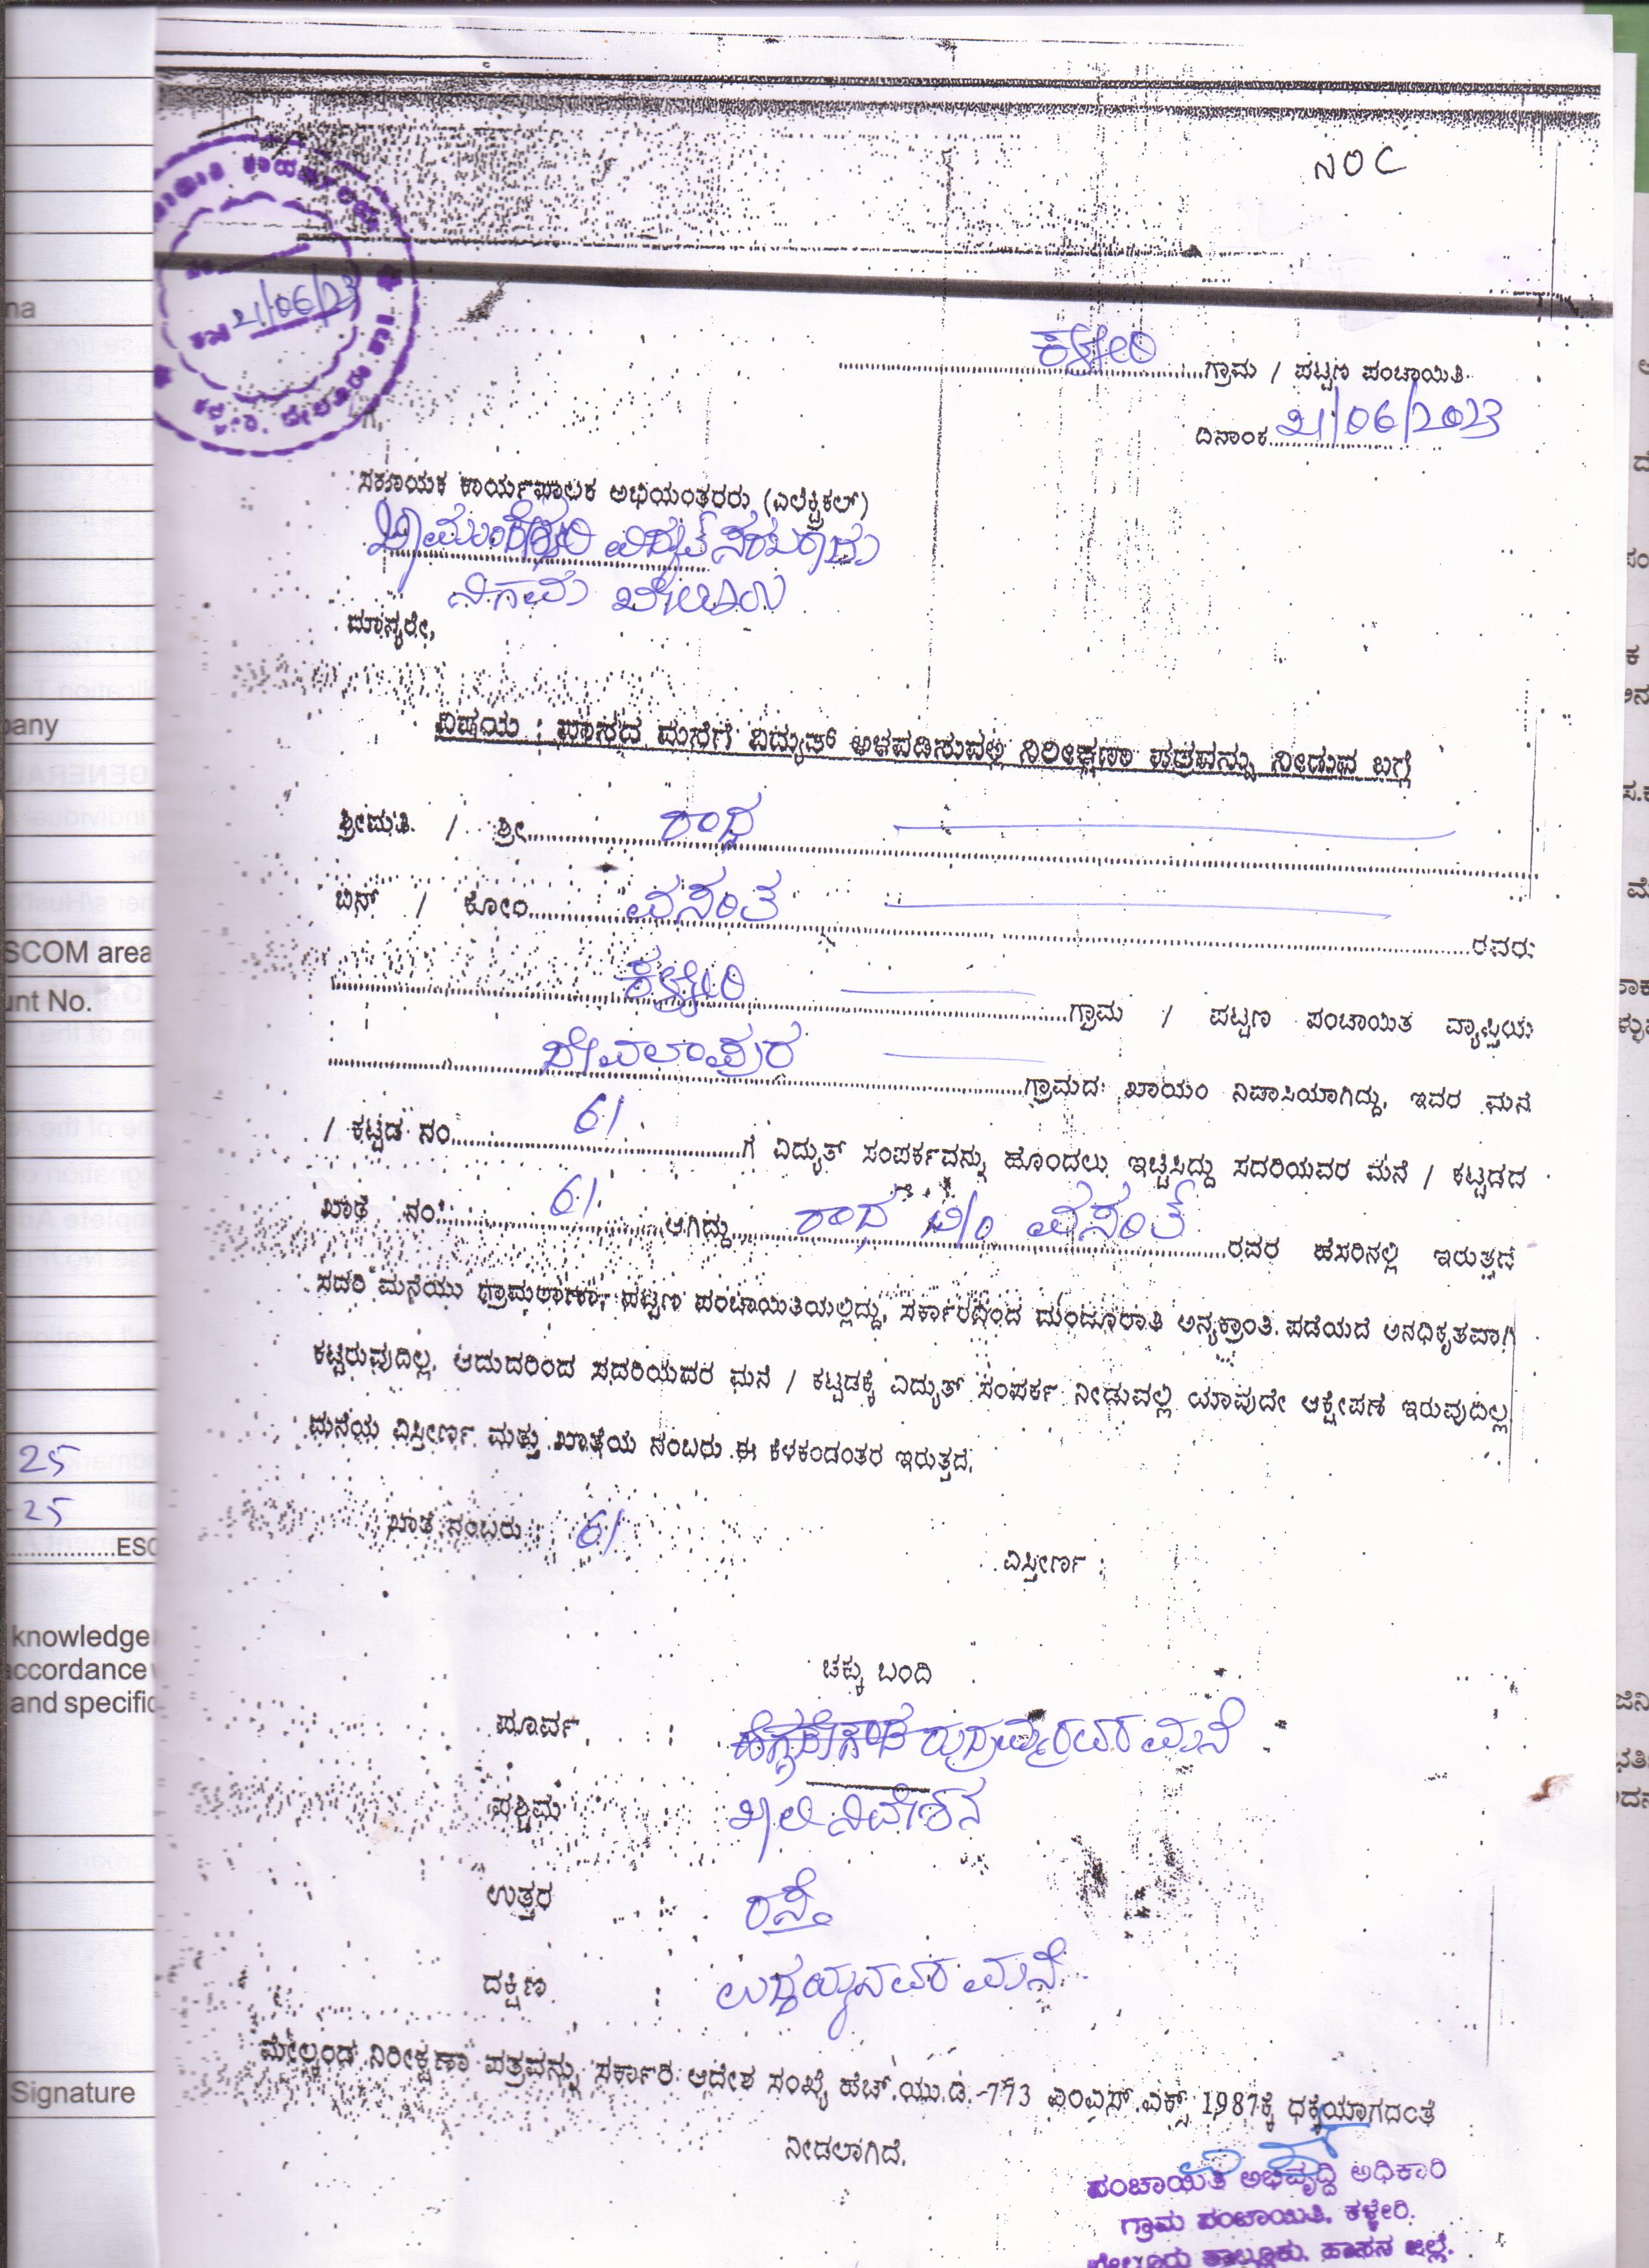 NOC
21/06/23
ಕಳ್ಳೇರಿ ಗ್ರಾಮ / ಪಟ್ಟಣ ಪಂಚಾಯಿತಿ
ದಿನಾಂಕ 21/06/2023
ಸಹಾಯಕ ಕಾರ್ಯಪಾಲಕ ಅಭಿಯಂತರರು (ಎಲೆಕ್ಟ್ರಿಕಲ್)
ಚಾಮುಂಡೇಶ್ವರಿ ವಿದ್ಯುತ್ ಸರಬರಾಜು
ನಿಗಮ
ಮಾನ್ಯರೇ,
ವಿಷಯ : ವಾಸದ ಮನೆಗೆ ವಿದ್ಯುತ್ ಅಳವಡಿಸುವಲ್ಲಿ ನಿರೀಕ್ಷಣಾ ಪತ್ರವನ್ನು ನೀಡುವ ಬಗ್ಗೆ
ಶ್ರೀಮತಿ / ಶ್ರೀ ರಾಧ
ಬಿನ್ / ಕೋಂ ವಸಂತ ರವರು
ಕಳ್ಳೇರಿ ಗ್ರಾಮ / ಪಟ್ಟಣ ಪಂಚಾಯಿತಿ ವ್ಯಾಪ್ತಿಯ
ದೇವಲಾಪುರ ಗ್ರಾಮದ ಖಾಯಂ ನಿವಾಸಿಯಾಗಿದ್ದು, ಇವರ ಮನೆ
/ ಕಟ್ಟಡ ನಂ 61 ಗೆ ವಿದ್ಯುತ್ ಸಂಪರ್ಕವನ್ನು ಹೊಂದಲು ಇಚ್ಚಿಸಿದ್ದು ಸದರಿಯವರ ಮನೆ / ಕಟ್ಟಡದ
ಖಾತೆ ನಂ 61 ಆಗಿದ್ದು ರಾಧ W/o ವಸಂತ್ ರವರ ಹೆಸರಿನಲ್ಲಿ ಇರುತ್ತದೆ
ಸದರಿ ಮನೆಯು ಗ್ರಾಮಠಾಣಾ, ಪಟ್ಟಣ ಪಂಚಾಯಿತಿಯಲ್ಲಿದ್ದು, ಸರ್ಕಾರದಿಂದ ಮಂಜೂರಾತಿ ಅನ್ಯಕ್ರಾಂತಿ ಪಡೆಯದೆ ಅನಧಿಕೃತವಾಗಿ
ಕಟ್ಟಿರುವುದಿಲ್ಲ. ಆದುದರಿಂದ ಸದರಿಯವರ ಮನೆ / ಕಟ್ಟಡಕ್ಕೆ ವಿದ್ಯುತ್ ಸಂಪರ್ಕ ನೀಡುವಲ್ಲಿ ಯಾವುದೇ ಆಕ್ಷೇಪಣೆ ಇರುವುದಿಲ್ಲ
ಮನೆಯ ವಿಸ್ತೀರ್ಣ ಮತ್ತು ಖಾತೆಯ ನಂಬರು ಈ ಕೆಳಕಂಡಂತರ ಇರುತ್ತದೆ.
ಖಾತೆ ನಂಬರು : 61
ವಿಸ್ತೀರ್ಣ :
ಚಕ್ಕು ಬಂದಿ
ಪೂರ್ವ : ರುದ್ರಪ್ಪರವರ ಮನೆ
ಪಶ್ಚಿಮ ಖಾಲಿ ನಿವೇಶನ
ಉತ್ತರ : ರಸ್ತೆ
ದಕ್ಷಿಣ : ಲಗ್ಗಯ್ಯನವರ ಮನೆ
ಮೇಲ್ಕಂಡ ನಿರೀಕ್ಷಣಾ ಪತ್ರವನ್ನು ಸರ್ಕಾರಿ ಆದೇಶ ಸಂಖ್ಯೆ ಹೆಚ್.ಯು.ಡಿ.-773 ಎಂಎಸ್.ಎಕ್ಸ್ 1987ಕ್ಕೆ ಧಕ್ಕೆಯಾಗದಂತೆ
ನೀಡಲಾಗಿದೆ.
ಪಂಚಾಯಿತಿ ಅಭಿವೃದ್ಧಿ ಅಧಿಕಾರಿ
ಗ್ರಾಮ ಪಂಚಾಯಿತಿ, ಕಳ್ಳೇರಿ.
ಬೇಲೂರು ತಾಲ್ಲೂಕು, ಹಾಸನ ಜಿಲ್ಲೆ.
SCOM area
unt No.
25
25
ESC
knowledge
accordance
and specific
Signature